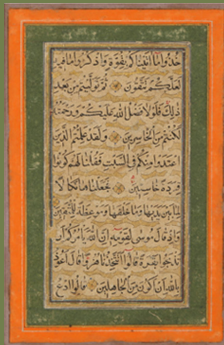 خذوا ما آتيناكم بقوة واذكروا ما فيه
لعلكم تتقون ثم توليتم من بعد
ذلك فلولا فضل الله عليكم ورحمته
لكنتم من الخاسرين ولقد علمتم الذين
اعتدوا منكم في السبت فقلنا لهم كونوا
قردة خاسئين فجعلناها نكالا
لما بين يديها وما خلفها وموعظة للمتقين
واذ قال موسى لقومه ان الله يأمركم ان
تذبحوا بقرة قالوا أتتخذنا هزوا قال أعوذ
بالله أن أكون من الجاهلين قالوا ادع